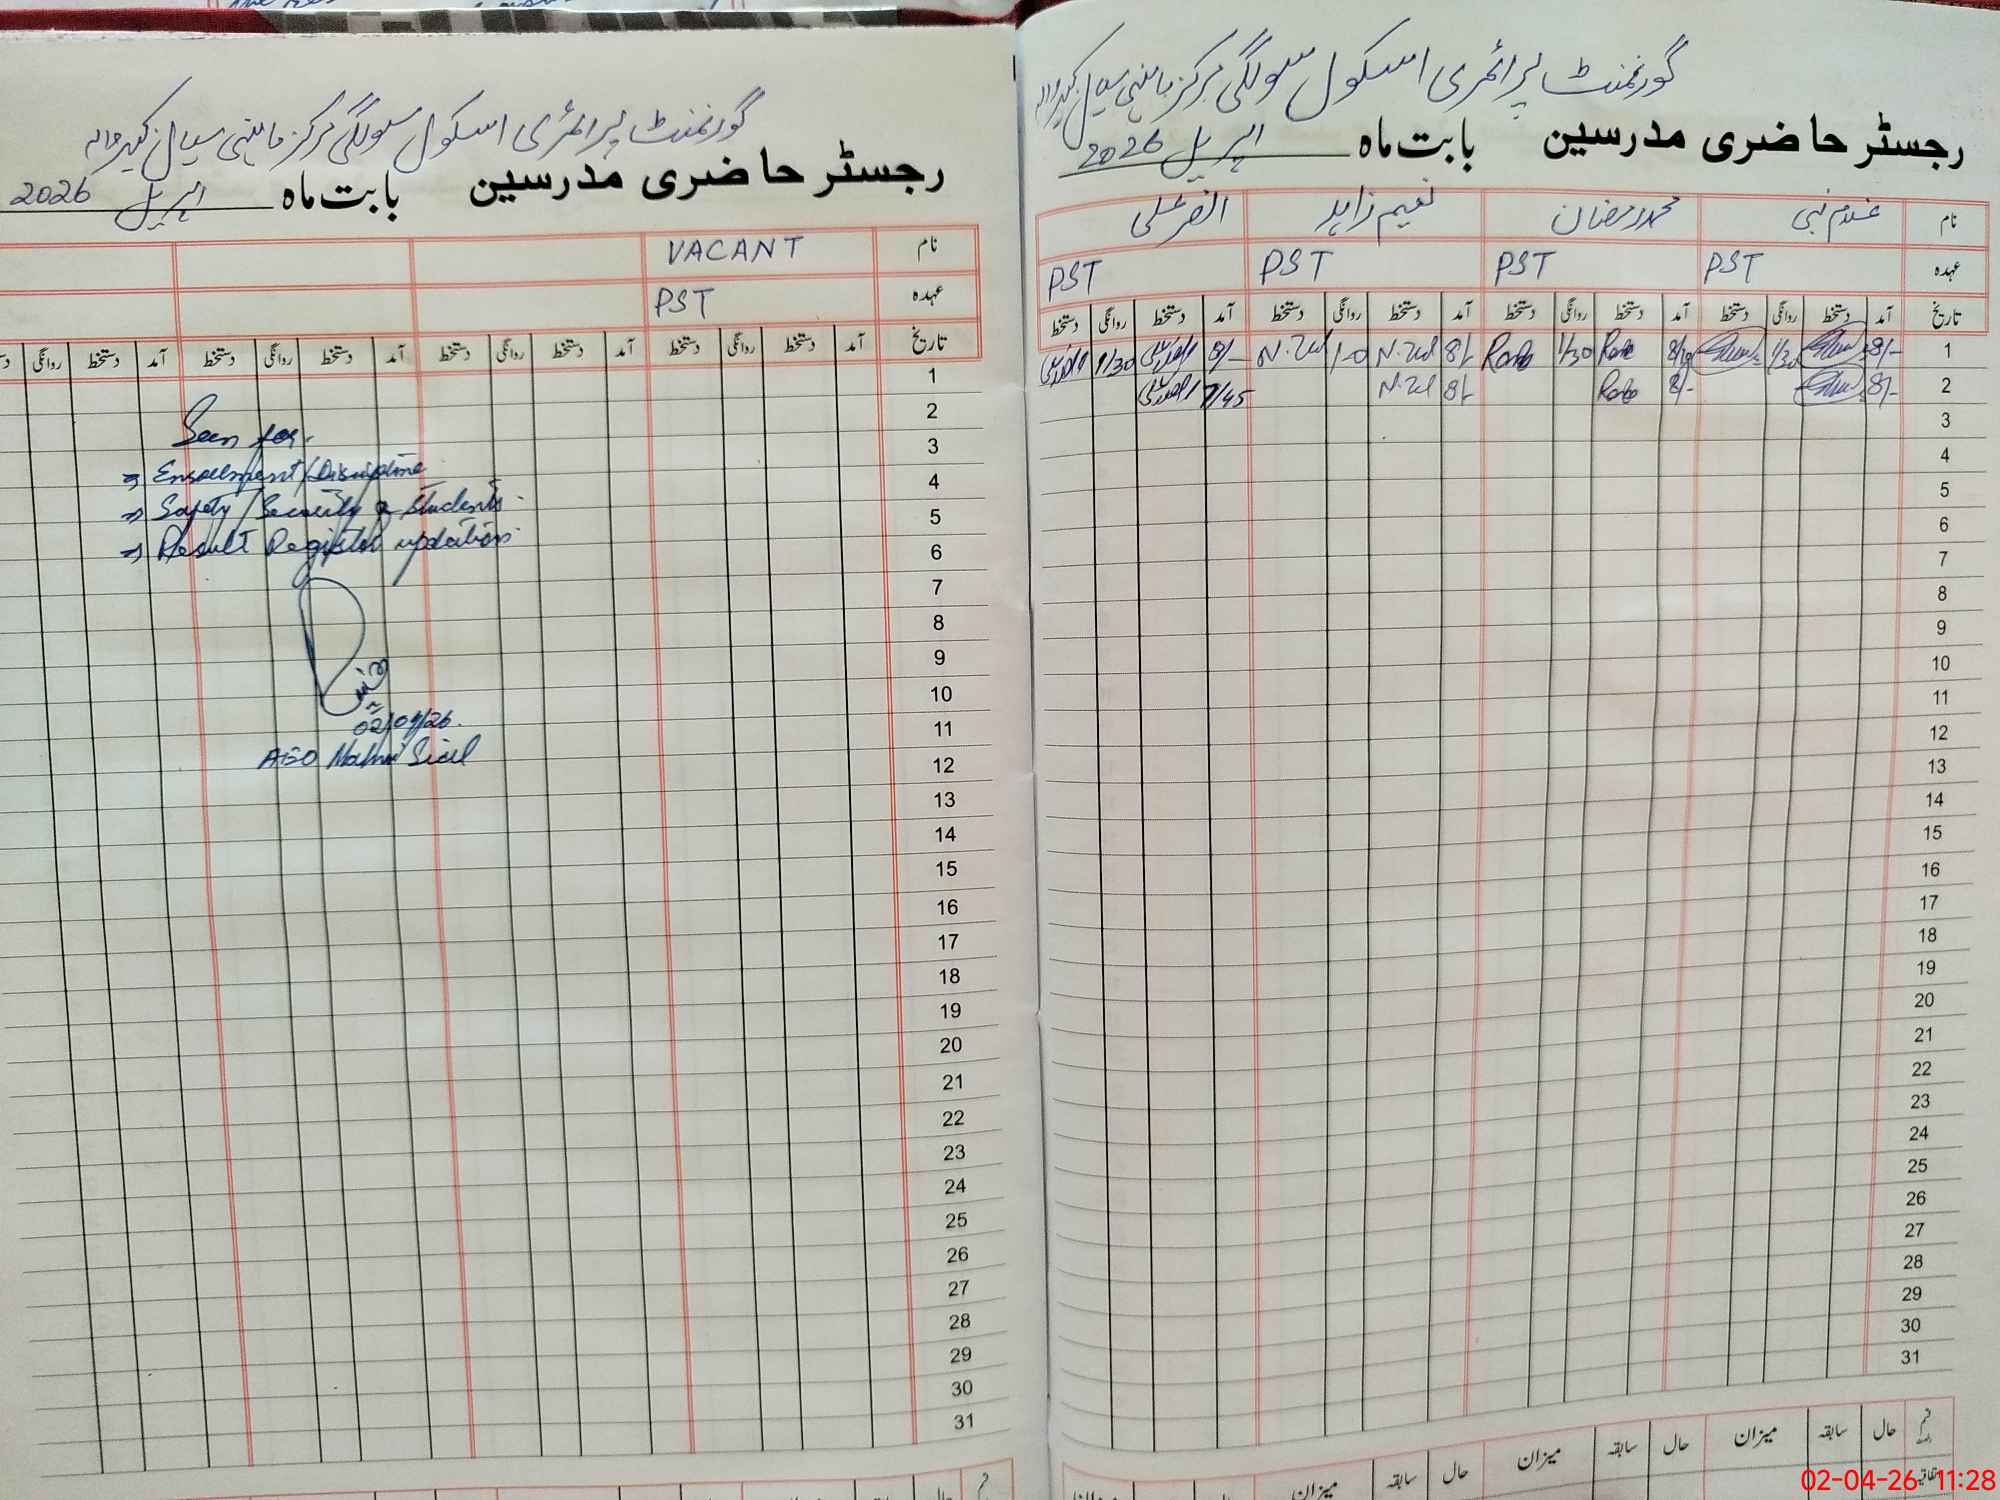 گورنمنٹ پرائمری اسکول سولگی مرکز ماہنی سیال کبیروالہ
رجسٹر حاضری مدرسین بابت ماہ اپریل 2026
نام غلام نبی محمد رمضان نعیم زاہد انصر علی
عہدہ PST PST PST PST
تاریخ آمد دستخط روانگی دستخط آمد دستخط روانگی دستخط آمد دستخط روانگی دستخط آمد دستخط روانگی دستخط
1 8/- 1/30 8/10 1/30 8/- N.Zul 1-0 N.Zul 8/- 1/30
2 8/- 8/- 8/- N.Zul 7/45
3
4
5
6
7
8
9
10
11
12
13
14
15
16
17
18
19
20
21
22
23
24
25
26
27
28
29
30
31
حال سابقہ میزان حال سابقہ میزان حال سابقہ میزان
گورنمنٹ پرائمری اسکول سولگی مرکز ماہنی سیال کبیروالہ
رجسٹر حاضری مدرسین بابت ماہ اپریل 2026
نام VACANT
عہدہ PST
تاریخ آمد دستخط روانگی دستخط آمد دستخط روانگی دستخط آمد دستخط روانگی دستخط آمد دستخط روانگی
1
2
3
4
5
6
7
8
9
10
11
12
13
14
15
16
17
18
19
20
21
22
23
24
25
26
27
28
29
30
31
Seen for
⇒ Enrollment/Discipline
⇒ Safety/Security of Students
⇒ Result Register updation
02/04/26
AEO Mahni Sial
02-04-26 11:28